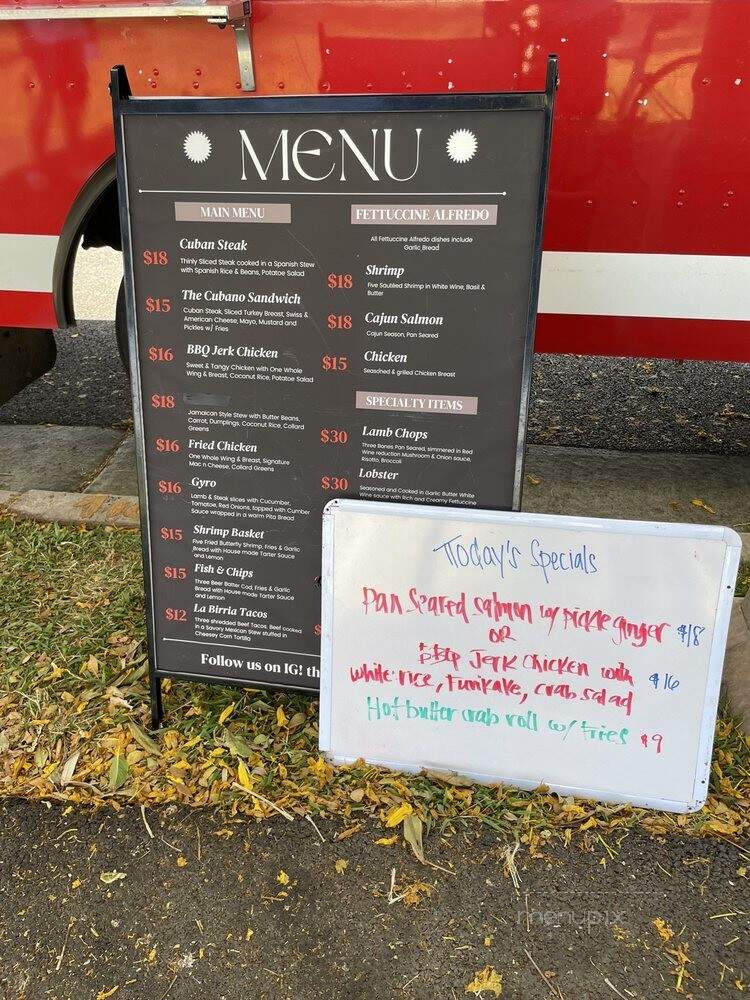 MENU
MAIN MENU
$18 Cuban Steak
Thinly Sliced Steak cooked in a Spanish Stew
with Spanish Rice & Beans, Potatoe Salad
$15 The Cubano Sandwich
Cuban Steak, Sliced Turkey Breast, Swiss &
American Cheese, Mayo, Mustard and
Pickles w/ Fries
$16 BBQ Jerk Chicken
Sweet & Tangy Chicken with One Whole
Wing & Breast, Coconut Rice, Potatoe Salad
$18
Jamaican Style Stew with Butter Beans,
Carrot, Dumplings, Coconut Rice, Collard
Greens
$16 Fried Chicken
One Whole Wing & Breast, Signature
Mac n Cheese, Collard Greens
$16 Gyro
Lamb & Steak slices with Cucumber,
Tomatoe, Red Onions, topped with Cumber
Sauce wrapped in a warm Pita Bread
$15 Shrimp Basket
Five Fried Butterfly Shrimp, Fries & Garlic
Bread with House made Tarter Sauce
and Lemon
$15 Fish & Chips
Three Beer Batter Cod, Fries & Garlic
Bread with House made Tarter Sauce
and Lemon
$12 La Birria Tacos
Three shredded Beef Tacos. Beef cooked
in a Savory Mexican Stew stuffed in
Cheesey Corn Tortilla
FETTUCCINE ALFREDO
All Fettuccine Alfredo dishes include
Garlic Bread
$18 Shrimp
Five Sautéed Shrimp in White Wine, Basil &
Butter
$18 Cajun Salmon
Cajun Season, Pan Seared
$15 Chicken
Seasoned & grilled Chicken Breast
SPECIALTY ITEMS
$30 Lamb Chops
Three Bones Pan Seared, simmered in Red
Wine reduction Mushroom & Onion sauce,
Risotto, Broccoli
$30 Lobster
Seasoned and Cooked in Garlic Butter White
Wine sauce with Rich and Creamy Fettuccine
$
Follow us on IG! th
Today's Specials
Pan Seared salmon w/ pickle ginger $18
OR
BBQ Jerk Chicken with $16
white rice, Furikake, crab salad
Hot butter crab roll w/ Fries $9
menupix